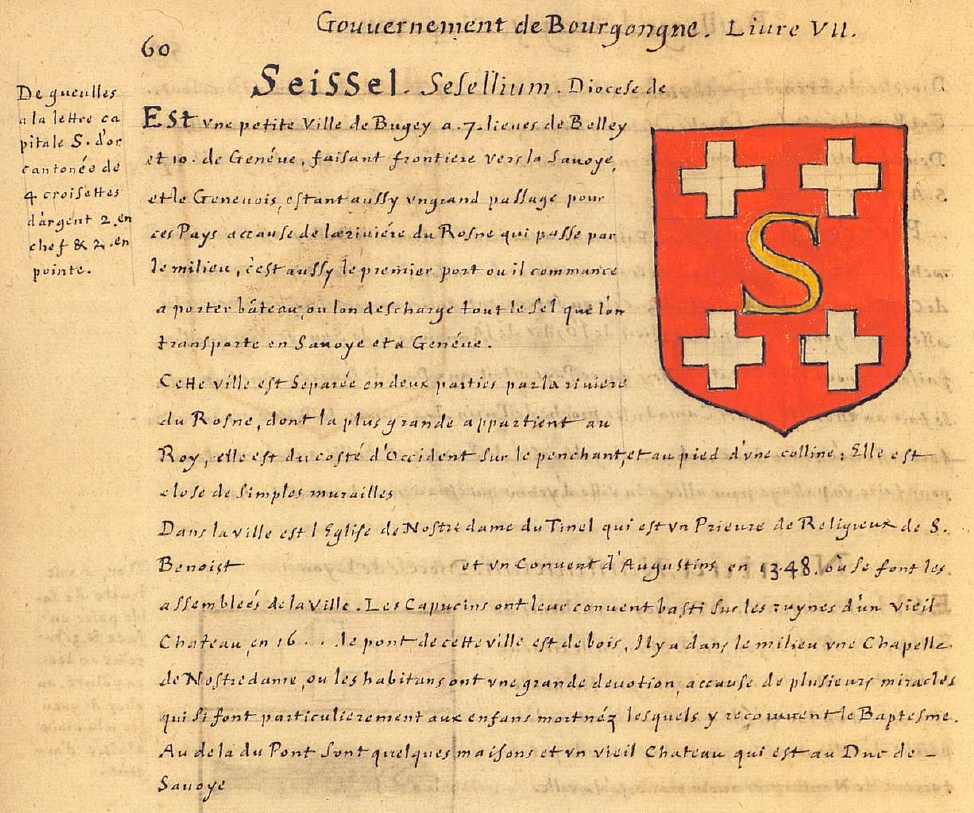 Gouuernement de Bourgongne. Liure VII.
60
Seissel. Sesellium. Diocese de
De gueulles
a la lettre ca
pitale S. d'or
cantonée de
4 croisettes
d'argent 2. en
chef & 2. en
pointe.
Est vne petite Ville de Bugey a .7. lieues de Belley
et 10. de Genéve, faisant frontiere vers la Sauoye,
et le Geneuois, estant aussy vn grand passage pour
ces Pays accause de la riviére du Rosne qui passe par
le milieu, c'est aussy le premier port ou il commance
a porter bâteau, ou lon descharge tout le sel que l'on
transporte en Sauoye et a Genéve.
Cette ville est Separée en deux parties par la riviere
du Rosne, dont la plus grande appartient au
Roy, elle est du costé d'Occident sur le penchant, et au pied d'vne colline; Elle est
close de simples murailles
Dans la ville est l'Eglise de Nostre dame du Tinel qui est vn Prieuré de Religieux de S.
Benoist et vn Convent d'Augustins en 1348. ou se font les
assembleés de la Ville. Les Capucins ont leur convent basti sur les ruynes d'un vieil
Chateau, en 16 . . . le pont de cette ville est de bois, Il y a dans le milieu vne Chapelle
de Nostre dame, ou les habitans ont vne grande devotion, accause de plusieurs miracles
qui si font particulierement aux enfans mortnéz lesquels y recouurent le Baptesme.
Au dela du Pont sont quelques maisons et vn vieil Chateau qui est au Duc de
Savoye
S